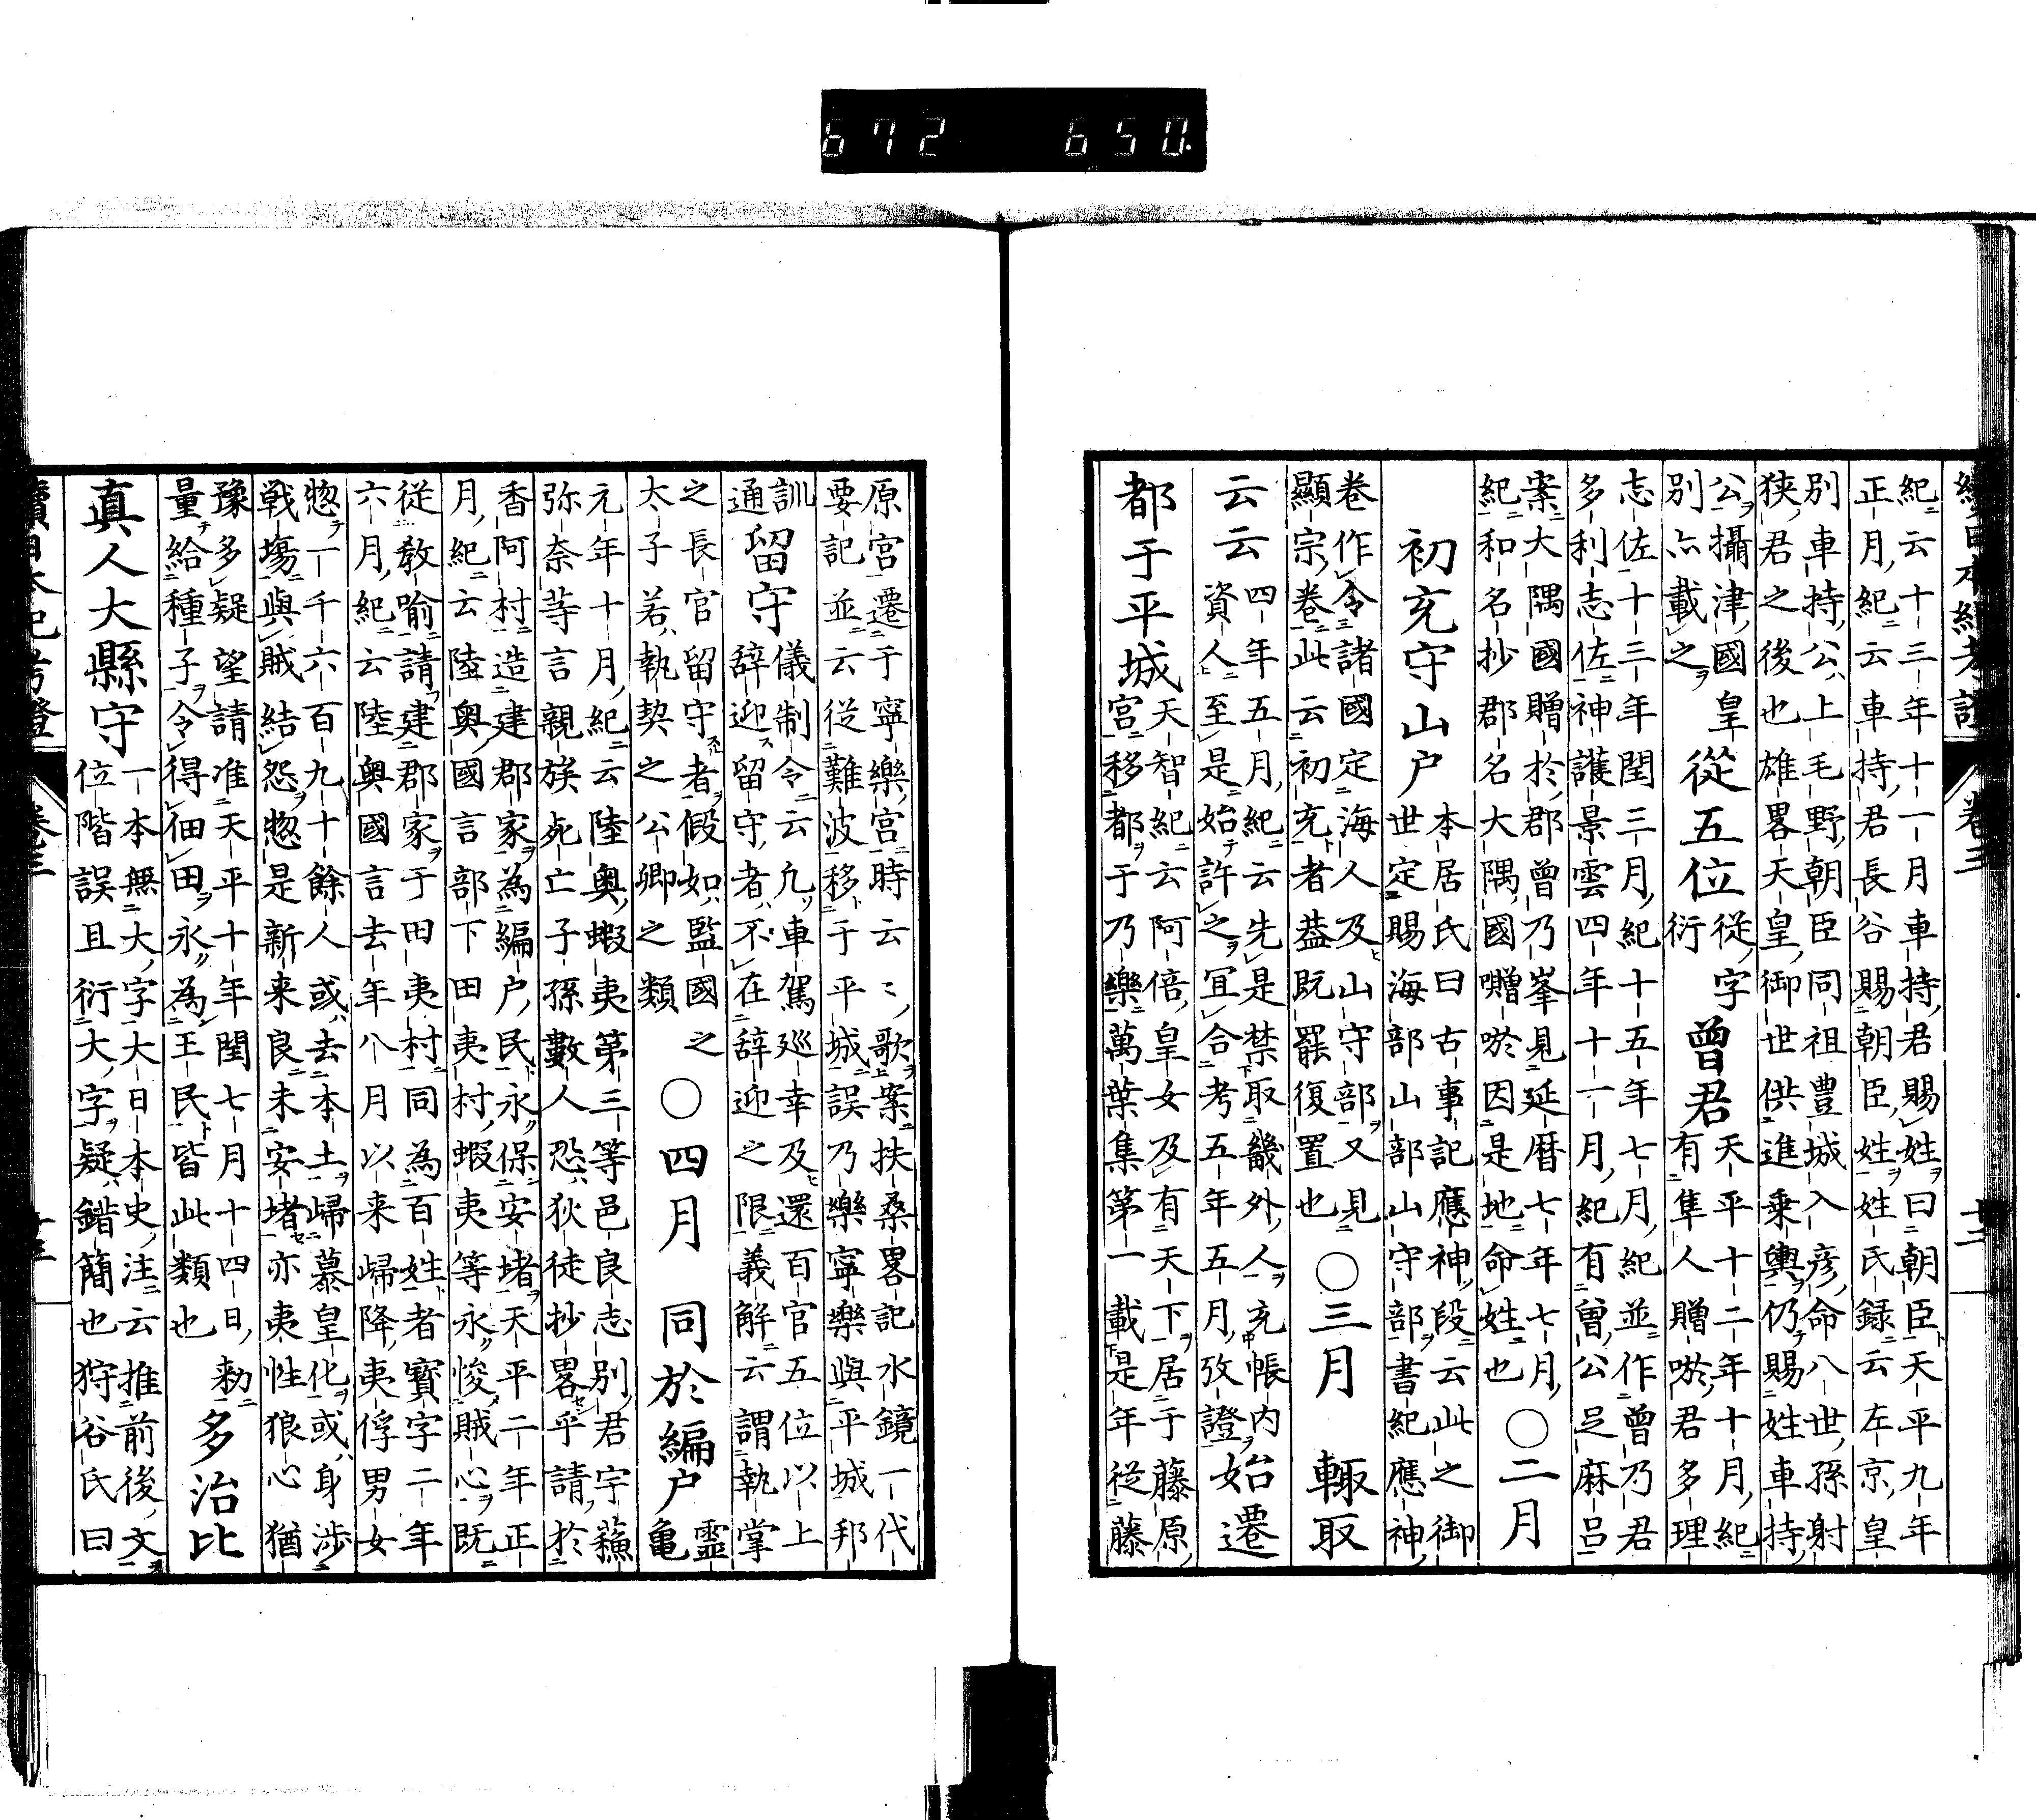 672 650.
紀云十三年十一月車持君賜姓曰朝臣天平九年
正月紀云車持君長谷賜朝臣姓姓氏録云左京皇
別車持公上毛野朝臣同祖豊城入彦命八世孫射
狭君之後也雄畧天皇御世供進乗輿仍賜姓車持
公攝津國皇
別亦載之
從五位
從字
衍
曾君
天平十二年十月紀
有隼人贈唹君多理
志佐十三年閏三月紀十五年七月紀並作曾乃君
多利志佐神護景雲四年十一月紀有曾公足麻呂
案大隅國贈於郡曾乃峯見延暦七年七月
紀和名抄郡名大隅國囎唹因是地命姓也
〇二月
初充守山户
本居氏曰古事記應神段云此之御
世定賜海部山部山守部書紀應神
卷作令諸國定海人及山守部又見
顯宗卷此云初充者葢既罷復置也
〇三月 輙取
云云
四年五月紀云先是禁取畿外人充帳内
資人至是始許之冝合考五年五月攷證
始遷
都于平城
天智紀云阿倍皇女及有天下居于藤原
宮移都于乃樂萬葉集第一載是年從藤
原宮遷于寧樂宮時云〻歌案扶桑畧記水鏡一代
要記並云從難波移于平城誤乃樂寧樂與平城邦
訓
通
留守
儀制令云凡車駕巡幸及還百官五位以上
辞迎留守者不在辞迎之限義解云謂執掌
之長官留守者假如監國之
太子若執契之公卿之類
〇四月 同於編户
靈
亀
元年十月紀云陸奥蝦夷第三等邑良志別君宇蘓
弥奈等言親族死亡子孫數人恐狄徒抄畧乎請於
香阿村造建郡家為編户民永保安堵天平二年正
月紀云陸奥國言部下田夷村蝦夷等永悛賊心既
從教喻請建郡家于田夷村同為百姓者寳字二年
六月紀云陸奥國言去年八月以来歸降夷俘男女
惣一千六百九十餘人或去本土歸慕皇化或身渉
戦塲與賊結怨惣是新来良未安堵亦夷性狼心猶
豫多疑望請准天平十年閏七月十四日勅
量給種子令得佃田永為王民皆此類也
多治比
真人大縣守
一本無大字大日本史注云推前後文
位階誤且衍大字疑錯簡也狩谷氏曰